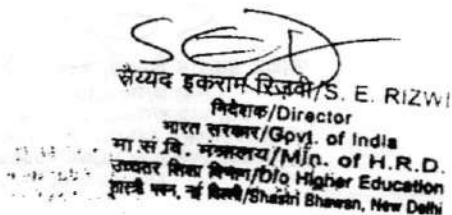 सैय्यद इकराम रिज़वी/S. E. RIZWI
निदेशक/Director
भारत सरकार/Govt. of India
मा.सं.वि. मंत्रालय/Min. of H.R.D.
उच्चतर शिक्षा विभाग/D/o Higher Education
शास्त्री भवन, नई दिल्ली/Shastri Bhawan, New Delhi